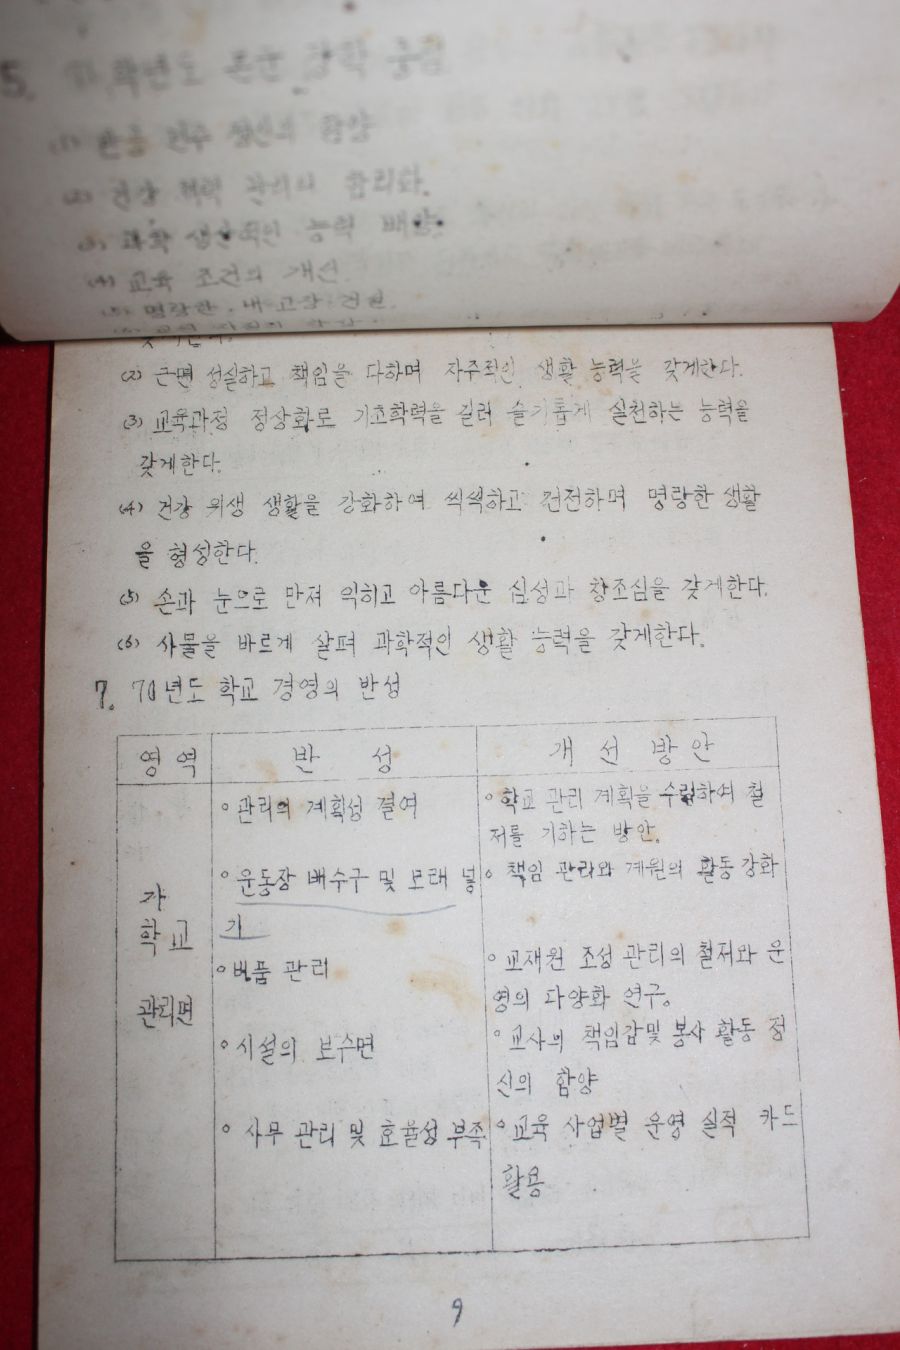 5. 71학년도 본군 장학 중점
(1) 반공 민주 정신의 함양
(2) 건강 체력 관리의 합리화.
(3) 과학 생산적인 능력 배양.
(4) 교육 조건의 개선.
(5) 명랑한 내 고장 건설.
(2) 근면 성실하고 책임을 다하며 자주적인 생활 능력을 갖게한다.
(3) 교육과정 정상화로 기초학력을 길러 슬기롭게 실천하는 능력을
갖게한다.
(4) 건강 위생 생활을 강화하여 씩씩하고 건전하며 명랑한 생활
을 형성한다.
(5) 손과 눈으로 만져 익히고 아름다운 심성과 창조심을 갖게한다.
(6) 사물을 바르게 살펴 과학적인 생활 능력을 갖게한다.
7. 70년도 학교 경영의 반성
영역 반 성 개 선 방 안
가
학교
관리면
◦관리의 계획성 결여
◦운동장 배수구 및 모래 넣
기
◦비품 관리
◦시설의 보수면
◦사무 관리 및 효율성 부족
◦학교 관리 계획을 수립하여 철
저를 기하는 방안.
◦책임 관리와 계원의 활동 강화
◦교재원 조성 관리의 철저와 운
영의 다양화 연구.
◦교사의 책임감및 봉사 활동 정
신의 함양
◦교육 사업별 운영 실적 카드
활용
9